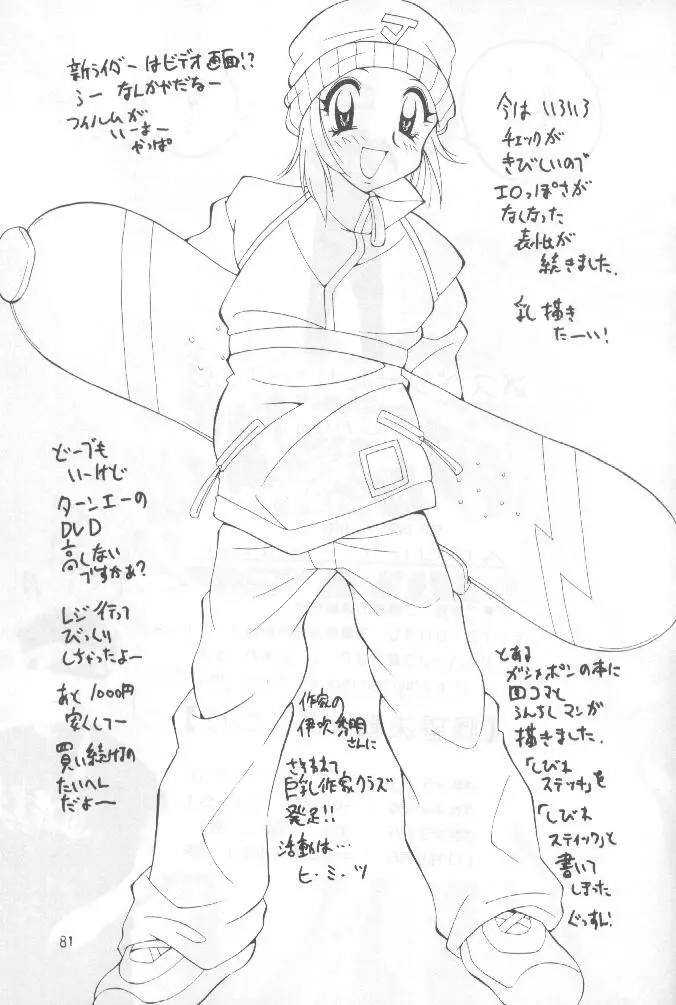 新ライダーはビデオ画面!?
うー なんかやだなー
フィルムが
いーなー
やっぱ
今は いろいろ
チェックが
きびしいので
エロっぽさが
なくなった
表紙が
続きました.
乳 描き
たーい!
どーでも
いーけど
ターンエーの
DVD
高くない
ですかぁ?
レジ行って
びっくり
しちゃったよー
あと1000円
安くしてー
買い続けるの
たいへん
だよー
作家の
伊吹秀明
さんに
さそわれて
巨乳作家クラブ
発足!!
活動は…
ヒ・ミ・ツ
とある
ガシャポンの本に
四コマと
マンガ
描きました.
「しびれ
ステッチ」を
「しびれ
スティック」と
書いて
しまった
ぐっすん!
81